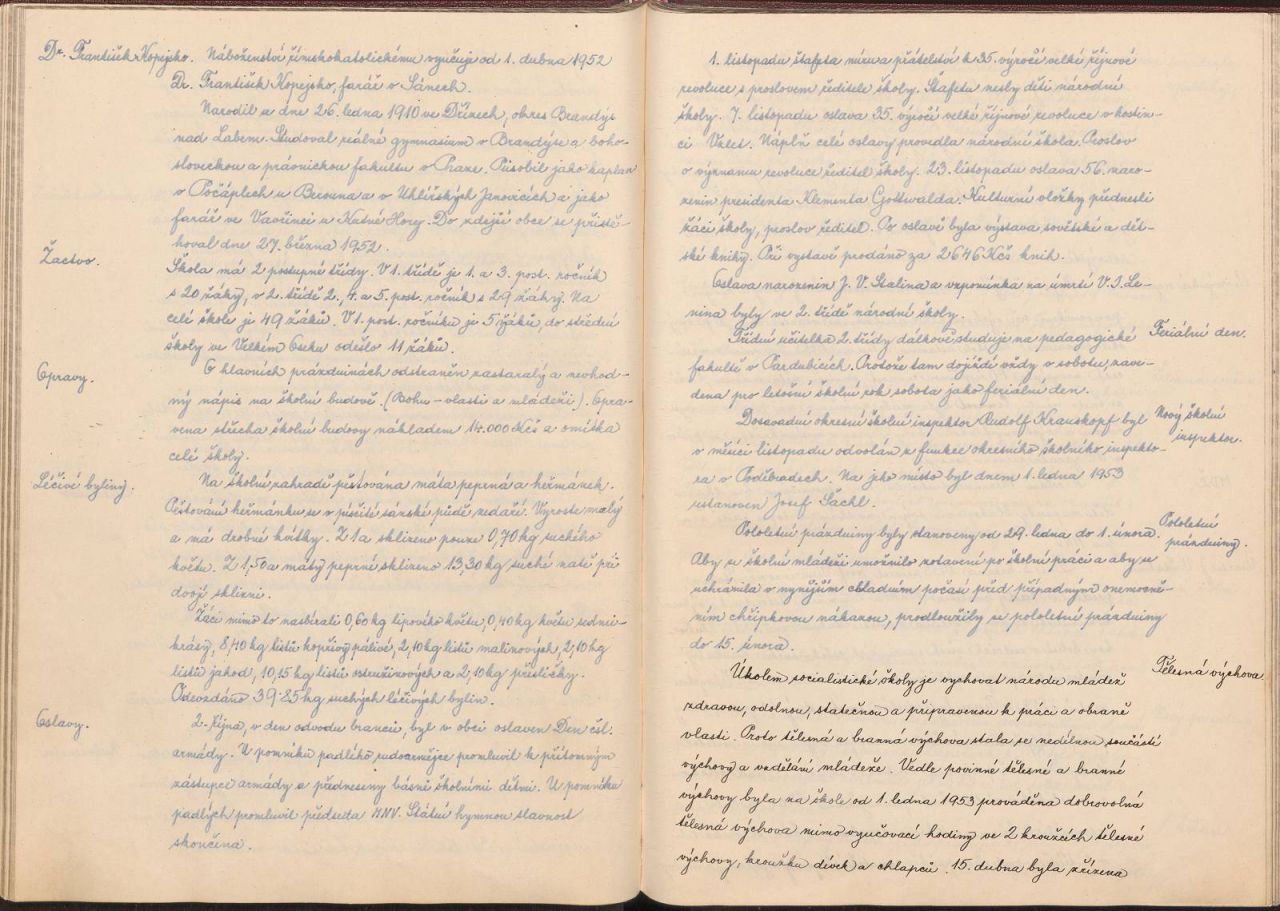 Dr. František Kopejsko. Náboženství římskokatolickému vyučuje od 1. dubna 1952
Dr. František Kopejsko, farář v Sánech.
Narodil se dne 26. ledna 1910 ve Dřínech, okres Brandýs
nad Labem. Studoval reálné gymnasium v Brandýse a boho-
sloveckou a právnickou fakultu v Praze. Působil jako kaplan
v Počáplech u Berouna a v Uhlířských Janovicích a jako
farář ve Vavřinci u Kutné Hory. Do zdejší obce se přistě-
hoval dne 27. března 1952.
Žactvo.
Škola má 2 postupné třídy. V 1. třídě je 1. a 3. post. ročník
s 20 žáky, v 2. třídě 2., 4. a 5. post. ročník s 29 žáky. Na
celé škole je 49 žáků. V 1. post. ročníku je 5 žáků, do střední
školy ve Velkém Oseku odešlo 11 žáků.
Opravy.
O hlavních prázdninách odstraněn zastaralý a nevhod-
ný nápis na školní budově. (Bohu - vlasti a mládeži). Opra-
vena střecha školní budovy nákladem 14.000 Kčs a omítka
celé školy.
Léčivé byliny.
Na školní zahradě pěstována máta peprná a heřmánek.
Pěstování heřmánku se v písčité sánské půdě nedaří. Vyroste malý
a má drobné kvítky. Z 1 a sklizeno pouze 0,70 kg suchého
květu. Z 1,50 a máty peprné sklizeno 13,30 kg suché natě při
dvojí sklizni.
Žáci mimo to nasbírali 0,60 kg lipového květu, 0,40 kg květu sedmi-
krásy, 8,40 kg listů kopřivy pálivé, 2,10 kg listů malinových, 2,10 kg
listů jahod, 10,15 kg listů ostružinových a 2,10 kg přesličky.
Odevzdáno 39.85 kg suchých léčivých bylin.
Oslavy.
2. října, v den odvodu branců, byl v obci oslaven Den čsl.
armády. U pomníku padlého rudoarmějce promluvil k přítomným
zástupce armády a předneseny básně školními dětmi. U pomníku
padlých promluvil předseda MNV. Státní hymnou slavnost
skončena.
1. listopadu štafeta míru a přátelství k 35. výročí velké říjnové
revoluce s proslovem ředitele školy. Štafetu nesly děti národní
školy. 7. listopadu oslava 35. výročí velké říjnové revoluce v hostin-
ci Vzlet. Náplň celé oslavy provedla národní škola. Proslov
o významu revoluce ředitel školy. 23. listopadu oslava 56. naro-
zenin presidenta Klementa Gottwalda. Kulturní vložky přednesli
žáci školy, proslov ředitel. Po oslavě byla výstava sovětské a dět-
ské knihy. Při výstavě prodáno za 2646 Kčs knih.
Oslava narozenin J. V. Stalina a vzpomínka na úmrtí V. I. Le-
nina byly ve 2. třídě národní školy.
Feriální den.
Třídní učitelka 2. třídy dálkově studuje na pedagogické
fakultě v Pardubicích. Protože tam dojíždí vždy v sobotu, zave-
dena pro letošní školní rok sobota jako feriální den.
Nový školní
inspektor.
Dosavadní okresní školní inspektor Rudolf Krauskopf byl
v měsíci listopadu odvolán z funkce okresního školního inspekto-
ra v Poděbradech. Na jeho místo byl dnem 1. ledna 1953
ustanoven Josef Šáchl.
Pololetní
prázdniny.
Pololetní prázdniny byly stanoveny od 29. ledna do 1. února.
Aby se školní mládeži umožnilo zotavení po školní práci a aby se
uchránila v nynějším chladném počasí před případným onemocně-
ním chřipkovou nákazou, prodloužily se pololetní prázdniny
do 15. února.
Tělesná výchova.
Úkolem socialistické školy je vychovat národu mládež
zdravou, odolnou, statečnou a připravenou k práci a obraně
vlasti. Proto tělesná a branná výchova stala se nedílnou součástí
výchovy a vzdělání mládeže. Vedle povinné tělesné a branné
výchovy byla na škole od 1. ledna 1953 prováděna dobrovolná
tělesná výchova mimo vyučovací hodiny ve 2 kroužcích tělesné
výchovy, kroužku dívek a chlapců. 15. dubna byla zřízena